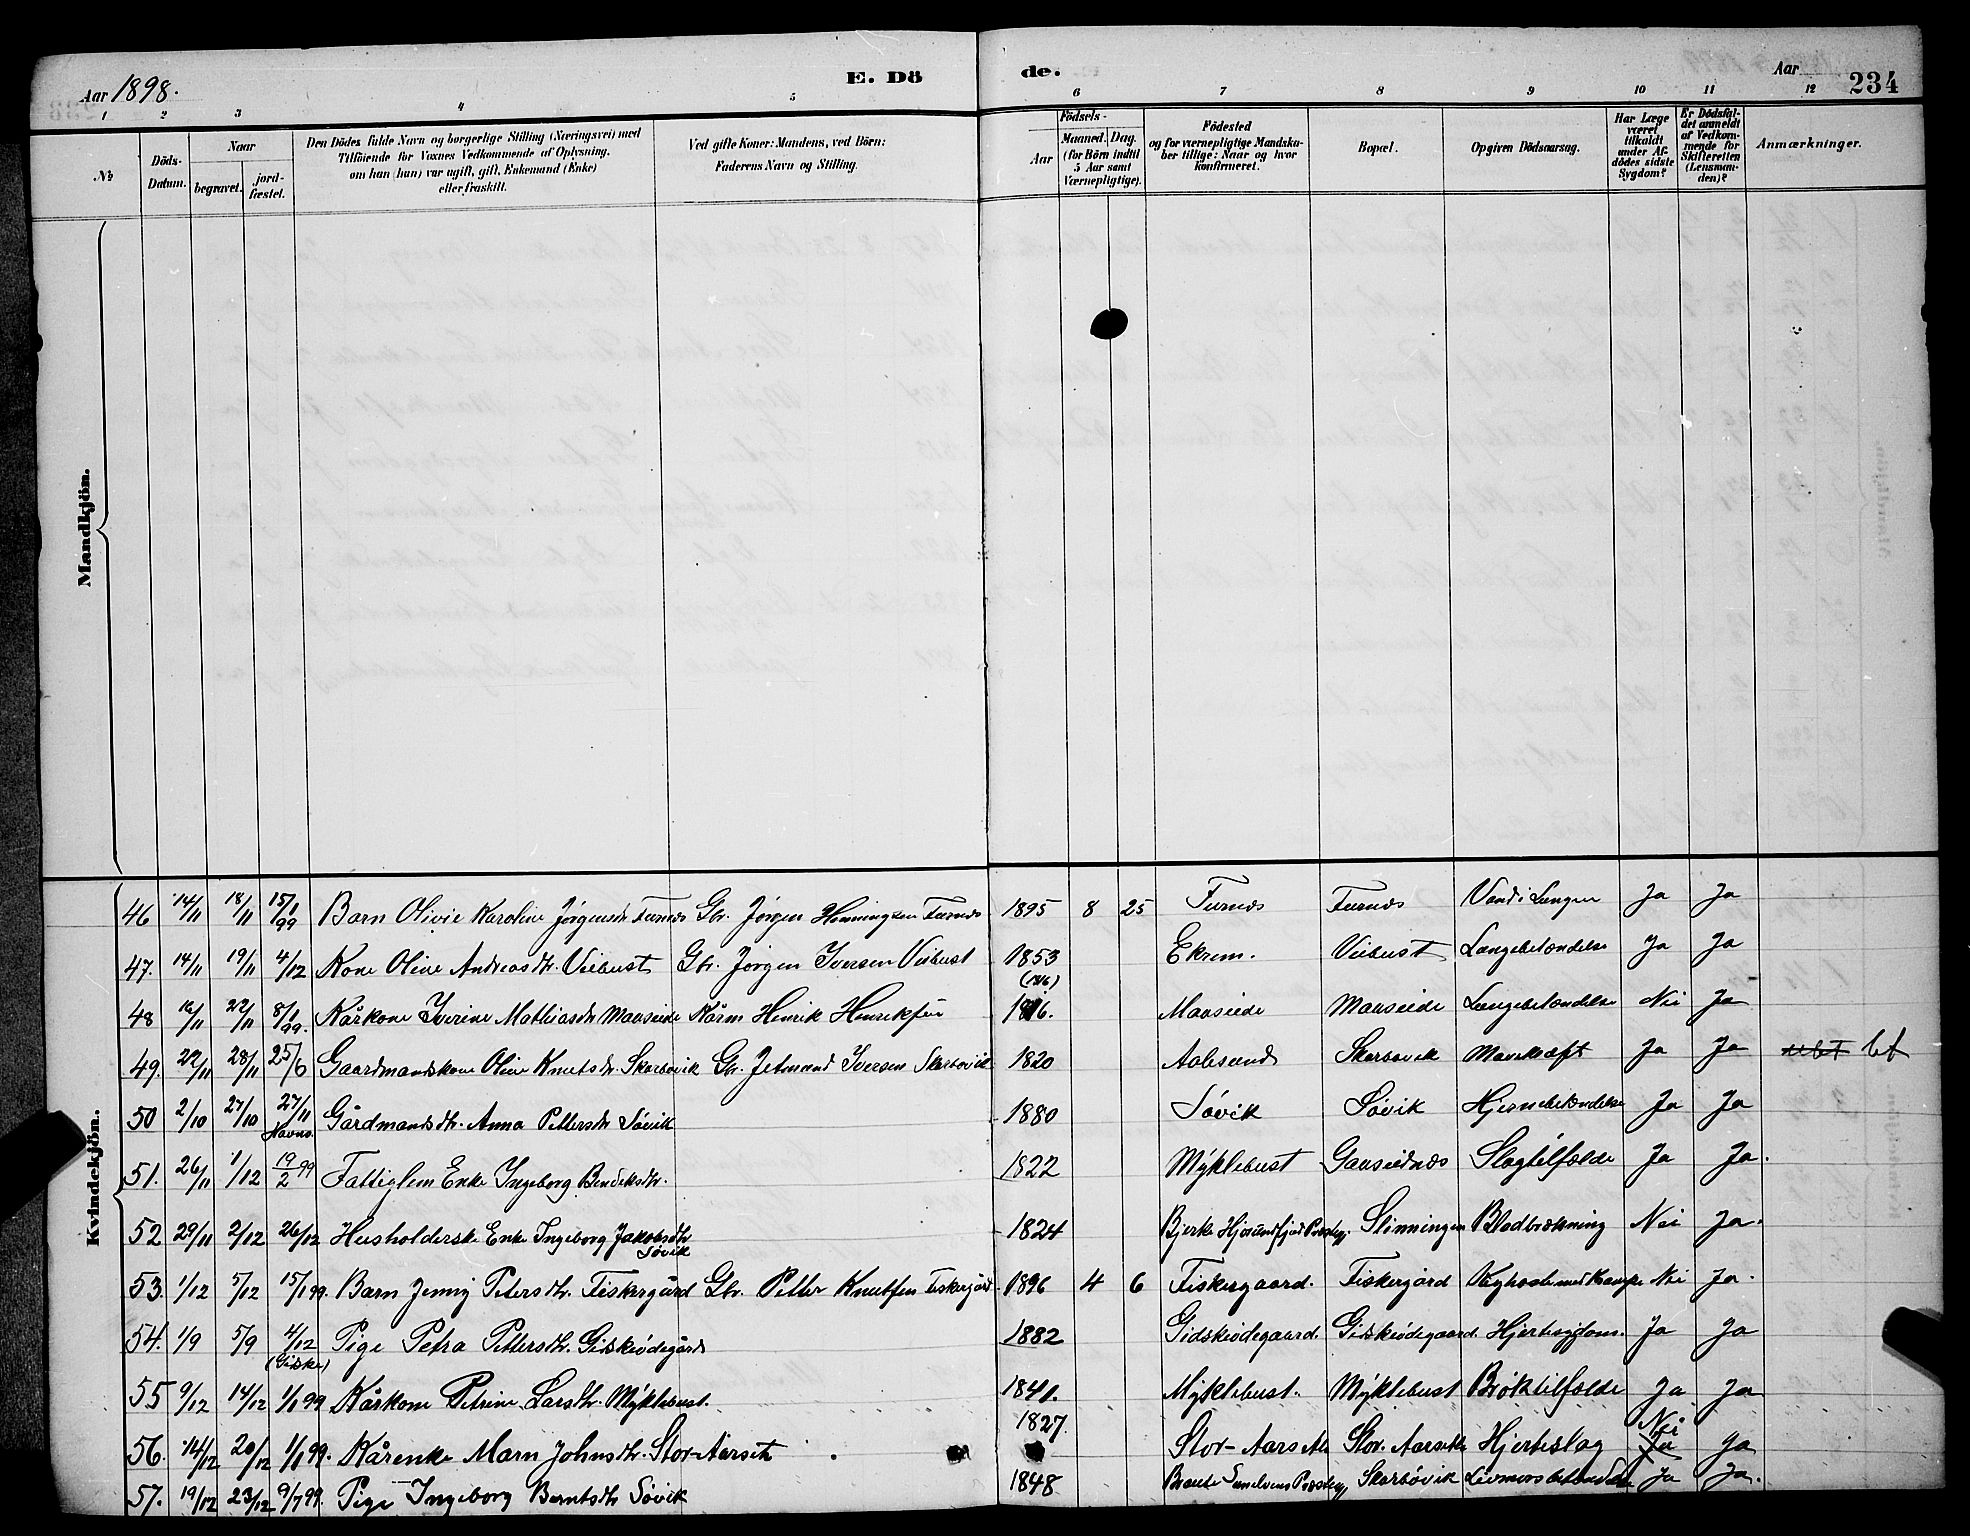 Aar 1898. E. Dö de. Aar 234
1 2 3 4 5 6 7 8 9 10 11 12
No
Döds-Datum.
Naar
begravet.
jord-fæstet.
Den Dödes fulde Navn og borgerlige Stilling (Næringsvei) med
Tilföiende for Voxnes Vedkommende af Oplysning,
om han (hun) var ugift, gift, Enkemand (Enke)
eller fraskilt.
Ved gifte Koner: Mandens, ved Börn:
Faderens Navn og Stilling.
Födsels-
Aar
Maaned. Dag.
(for Börn indtil
5 Aar samt
Værnepligtige).
Födested
og for værnepligtige Mandska-
ber tillige: Naar og hvor
konfirmeret.
Bopæl.
Opgiven Dödsaarsag.
Har Læge
været
tilkaldt
under Af-
dödes sidste
Sygdom?
Er Dödsfal-
det anmeldt
af Vedkom-
mende for
Skifteretten
(Lensman-
den)?
Anmærkninger.
Mandkjön.
Kvindekjön.
46 14/11 18/11 15/1 99 Barn Olivie Karoline Jørgensdr Furnes Gbr. Jørgen Henningsen Furnes 1895 8 25 Furnes Furnes Vand i Lungen Ja Ja
47. 14/11 19/11 4/12 Kone Oline Andreasdtr. Veibust Gbr. Jørgen Iversen Veibust 1853 Ekrem. Veibust Lungebetændelse Ja Ja
48 16/11 22/11 8/1 99. Kårkone Iverine Mathiasdtr Maaseide Kårm Henrik Henriksen (1816) 1816. Maaseide Maaseide Lungebetændelse Nei Ja
49. 22/11 28/11 25/6 Gaardmandskone Oline Knutsdtr. Skarbøvik Gbr. Jetmund Iversen Skarbøvik 1820 Aalesund Skarbøvik Mavekræft Ja Ja bet
50 2/10 27/10 27/11 Gårdmandsdtr. Anna Pettersdtr Søvik 1880 Søvik Søvik Hjernebetændelse Ja Ja
51. 26/11 1/12 19/2 99 Fattiglem Enke Ingeborg Bendiksdtr. 1822 Myklebust Gaaseidnes Slagtilfælde Ja Ja.
52 29/11 2/12 26/12 Husholderske Enke Ingeborg Jakobsdtr Søvik 1824 Bjerke Hjørundfjord Præstegj. Slinningen Blodbrækning Nei Ja.
53. 1/12 5/12 15/1 99. Barn Jenny Petersdtr. Fiskergård Gbr. Petter Knutsen Fiskergård 1896 4 6 Fiskergaard. Fiskergård Kighoste med Krampe Nei Ja.
54. 1/9 5/9 4/12 (Giske) Pige Petra Pettersdtr. Gidskeødegård 1882 Gidskeødegaard. Gidskeødegaard. Hjertesygdom. Ja Ja
55 9/12 14/12 1/1 99 Kårkone Petrine Larsdtr. Myklebust. 1840. Myklebust. Myklebust Brøktilfælde Ja Ja
56. 14/12 20/12 1/1 99. Kårenke Maren Johnsdtr. Stor-Aarseth 1827. Stor-Aarseth Stor. Aarseth Hjerteslag Nei Ja Ja
57. 19/12 23/12 9/7 99. Pige Ingeborg Berntsdtr Søvik 1848 Sunelvens Præstegj Skarbøvik Livmorsbetændelse Ja Ja.